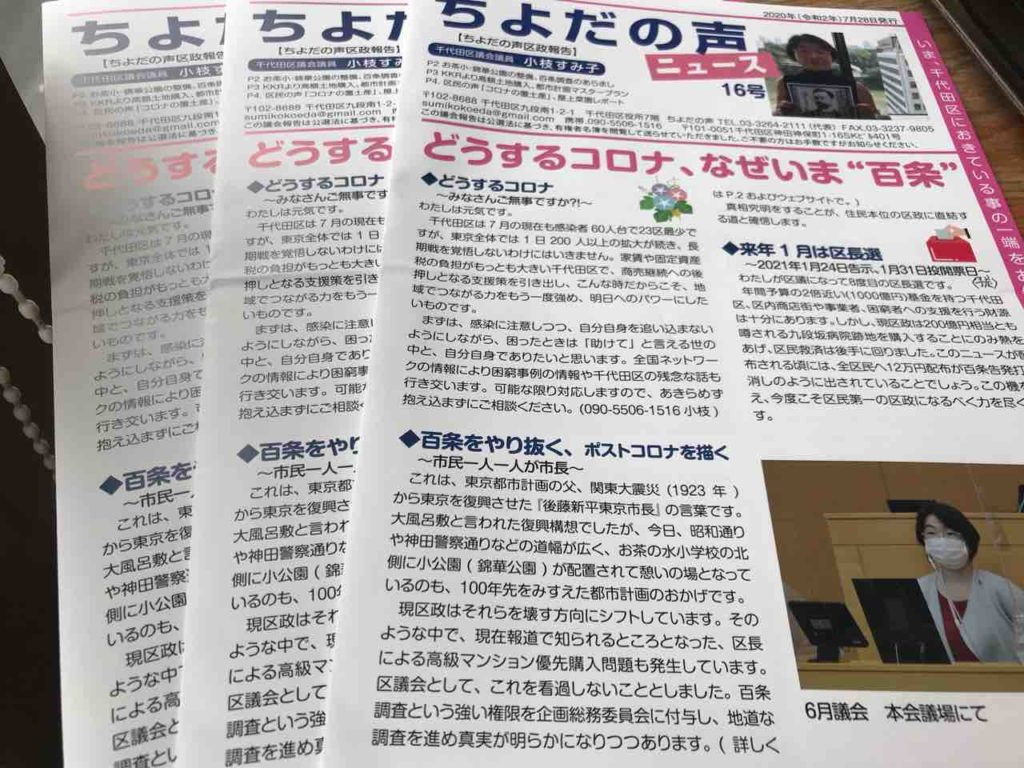 2020年(令和2年)7月28日発行
ちよだの声
【ちよだの声区政報告】
千代田区議会議員 小枝すみ子
ニュース
16号
P2 お茶小・錦華公園の整備、百条調査のあらまし
P3 KKRより高額土地購入、都市計画マスタープラン
P4、区民の声「コロナの置土産」、屋上菜園レポート
〒102-8688 千代田区九段南1-2-1 千代田区役所7階 ちよだの声 TEL.03-3264-2111(代表) FAX.03-3237-9805
sumikokoeda@gmail.com 携帯.090-5506-1516 〒101-0051千代田区神田神保町1-16SKビ3401号
この議会報告は公選法に基づき、有権者名簿を閲覧して送らせていただきました。ご不要の方はお手数ですがお知らせください。
いま、千代田区におきている事の一端を
どうするコロナ、なぜいま“百条”
◆どうするコロナ
〜みなさんご無事ですか?!〜
わたしは元気です。
千代田区は7月の現在も感染者60人台で23区最少で
すが、東京全体では1日200人以上の拡大が続き、長
期戦を覚悟しないわけにはいきません。家賃や固定資産
税の負担がもっとも大きい千代田区で、商売継続への後
押しとなる支援策を引き出し、こんな時だからこそ、地
域でつながる力をもう一度強め、明日へのパワーにした
いものです。
まずは、感染に注意しつつ、自分自身を追い込まない
ようにしながら、困ったときは「助けて」と言える世の
中と、自分自身でありたいと思います。全国ネットワー
クの情報により困窮事例の情報や千代田区の残念な話も
行き交います。可能な限り対応しますので、あきらめず
抱え込まずにご相談ください。(090-5506-1516 小枝)
◆百条をやり抜く、ポストコロナを描く
〜市民一人一人が市長〜
これは、東京都市計画の父、関東大震災(1923年)
から東京を復興させた『後藤新平東京市長』の言葉です。
大風呂敷と言われた復興構想でしたが、今日、昭和通り
や神田警察通りなどの道幅が広く、お茶の水小学校の北
側に小公園(錦華公園)が配置されて憩いの場となって
いるのも、100年先をみすえた都市計画のおかげです。
現区政はそれらを壊す方向にシフトしています。その
ような中で、現在報道で知られるところとなった、区長
による高級マンション優先購入問題も発生しています。
区議会として、これを看過しないこととしました。百条
調査という強い権限を企画総務委員会に付与し、地道な
調査を進め真実が明らかになりつつあります。(詳しく
はP.2およびウェブサイトで。)
真相究明をすることが、住民本位の区政に直結す
る道と確信します。
◆来年1月は区長選
〜2021年1月24日告示、1月31日投開票日〜
わたしが区議になって8度目の区長選です。
年間予算の2倍近い(1000億円)基金を持つ千代田
区、区内商店街や事業者、困窮者への支援を行う財源
は十分にあります。しかし、現区政は200億円相当とも
噂される九段坂病院跡地を購入することにのみ熱を
あげ、区民救済は後手に回りました。このニュースが
布される頃には、全区民へ12万円配布が百条告発打
消しのように出されていることでしょう。この機
え、今度こそ区民第一の区政になるべく力を尽く
す。
6月議会 本会議場にて